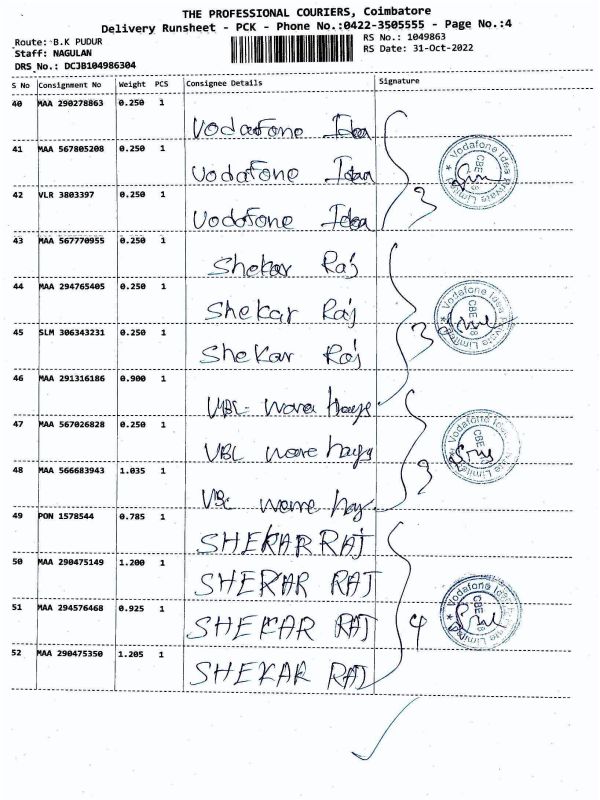 THE PROFESSIONAL COURIERS, Coimbatore
Delivery Runsheet - PCK - Phone No.:0422-3505555 - Page No.:4
Route: B.K PUDUR
RS No.: 1049863
Staff: NAGULAN
RS Date: 31-Oct-2022
DRS No.: DCJB104986304
S No Consignment No Weight PCS Consignee Details Signature
40 MAA 290278863 0.250 1
Vodafone Idea
41 MAA 567805208 0.250 1
Vodafone Idea
42 VLR 3803397 0.250 1
Vodofone Idea
3
Vodafone Idea Private Limited
CBE
43 MAA 567770955 0.250 1
Shekar Raj
44 MAA 294765405 0.250 1
Shekar Raj
45 SLM 306343231 0.250 1
Shekar Raj
3
Vodafone Idea Private Limited
CBE
46 MAA 291316186 0.900 1
VBL
47 MAA 567026828 0.250 1
VBL
48 MAA 566683943 1.035 1
3
Vodafone Idea Private Limited
CBE
49 PON 1578544 0.785 1
SHEKAR RAJ
50 MAA 290475149 1.200 1
SHEKAR RAJ
51 MAA 294576468 0.925 1
SHEKAR RAJ
52 MAA 290475350 1.205 1
SHEKAR RAJ
4
Vodafone Idea Private Limited
CBE